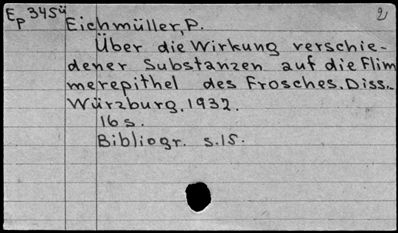 Ep 345ü
2
Eichmüller, P.
Über die Wirkung verschie-
dener Substanzen auf die Flim
merepithel des Frosches. Diss..
Würzburg. 1932.
16 s.
Bibliogr. s. 15.